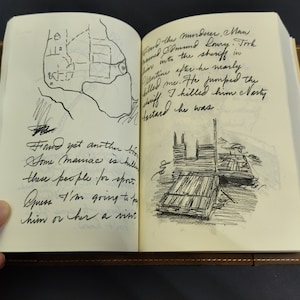 Found yet another
Some maniac is
these people for sport.
Guess I'm going to
him or her a visit.
the murderer, Man
named Edmund Lowry. Took
into the sheriff in
after he nearly
killed me. He jumped the
I killed him. Nasty
bastard he was